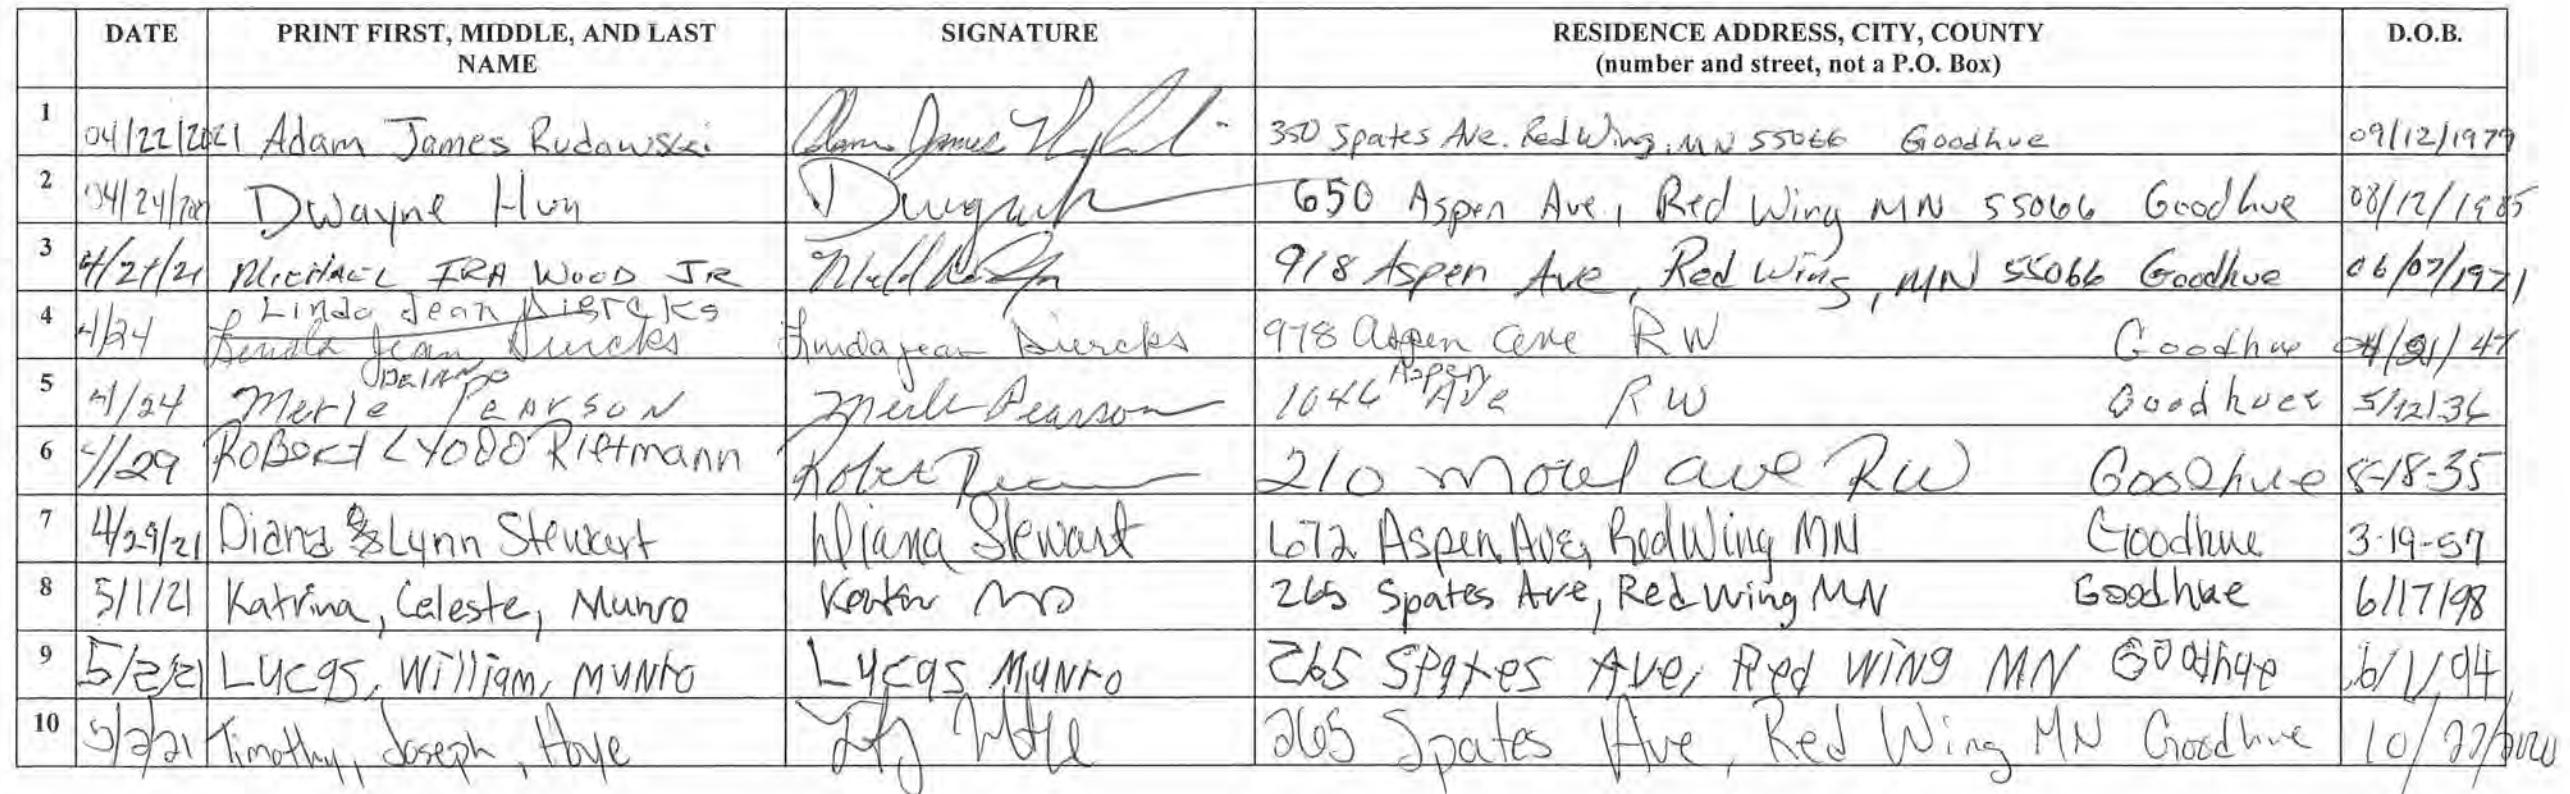 DATE PRINT FIRST, MIDDLE, AND LAST NAME SIGNATURE RESIDENCE ADDRESS, CITY, COUNTY (number and street, not a P.O. Box) D.O.B.
1 04/22/2021 Adam James Rudawski Adam James 350 Spates Ave. Red Wing, MN 55066 Goodhue 09/12/1979
2 04/24/2021 Dwayne Hun 650 Aspen Ave, Red Wing MN 55066 Goodhue 08/12/1985
3 4/24/21 MICHAEL IRA WOOD JR 918 Aspen Ave, Red Wing, MN 55066 Goodhue 06/07/1971
4 4/24 Linda Jean Diercks Linda Jean Diercks Linda Jean Diercks 978 Aspen Ave RW Goodhue 04/21/47
5 4/24 Merle DELANO PEARSON Merle Pearson 1046 Aspen Ave RW Goodhue 5/12/36
6 4/29 Robert LYODD Rietmann Robert 210 Ave RW Goodhue 8-18-35
7 4/29/21 Diana Lynn Stewart Diana Stewart 672 Aspen Ave, Red Wing MN Goodhue 3-19-57
8 5/1/21 Katrina, Celeste, Munro 265 Spates Ave, Red Wing MN Goodhue 6/17/98
9 5/2/21 Lucas, William, Munro Lucas Munro 265 Spates Ave, Red Wing MN Goodhue 6/1/94
10 5/2/21 Timothy, Joseph, Hoye 265 Spates Ave, Red Wing MN Goodhue 10/22/2020